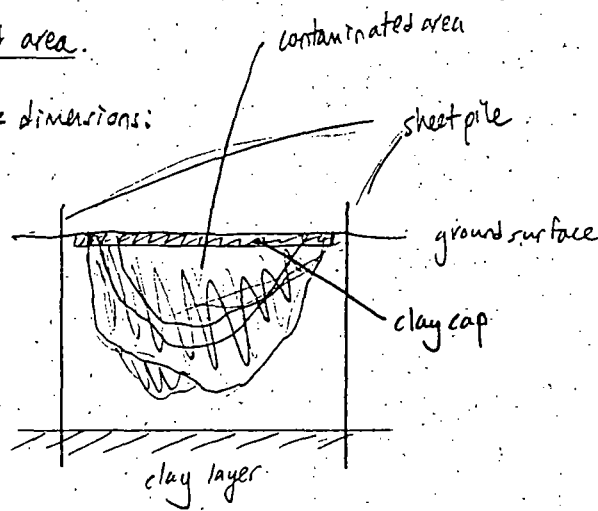 area.
contaminated area
dimensions:
sheetpile
ground surface
clay cap
clay layer